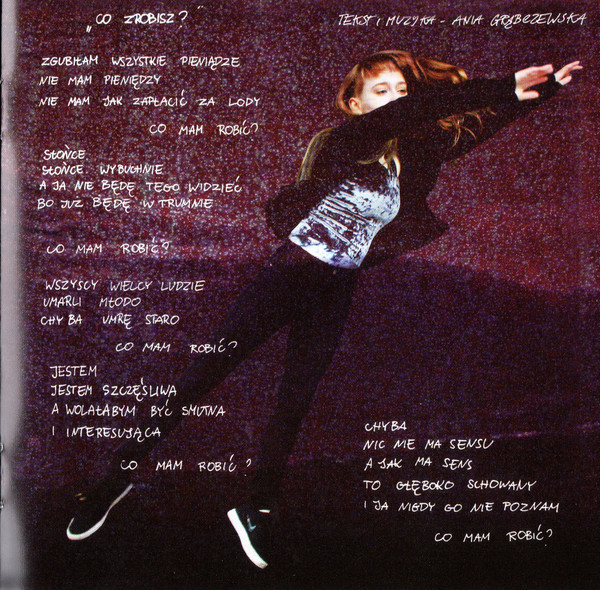 „CO ZROBISZ?"
TEKST I MUZYKA - ANIA GRĄBCZEWSKA
ZGUBIŁAM WSZYSTKIE PIENIĄDZE
NIE MAM PIENIĘDZY
NIE MAM JAK ZAPŁACIĆ ZA LODY
CO MAM ROBIĆ?
SŁOŃCE
SŁOŃCE WYBUCHNIE
A JA NIE BĘDĘ TEGO WIDZIEĆ
BO JUŻ BĘDĘ W TRUMNIE
CO MAM ROBIĆ?
WSZYSCY WIELCY LUDZIE
UMARLI MŁODO
CHYBA UMRĘ STARO
CO MAM ROBIĆ?
JESTEM
JESTEM SZCZĘŚLIWA
A WOLAŁABYM BYĆ SMUTNA
I INTERESUJĄCA
CO MAM ROBIĆ?
CHYBA
NIC NIE MA SENSU
A JAK MA SENS
TO GŁĘBOKO SCHOWANY
I JA NIGDY GO NIE POZNAM
CO MAM ROBIĆ?